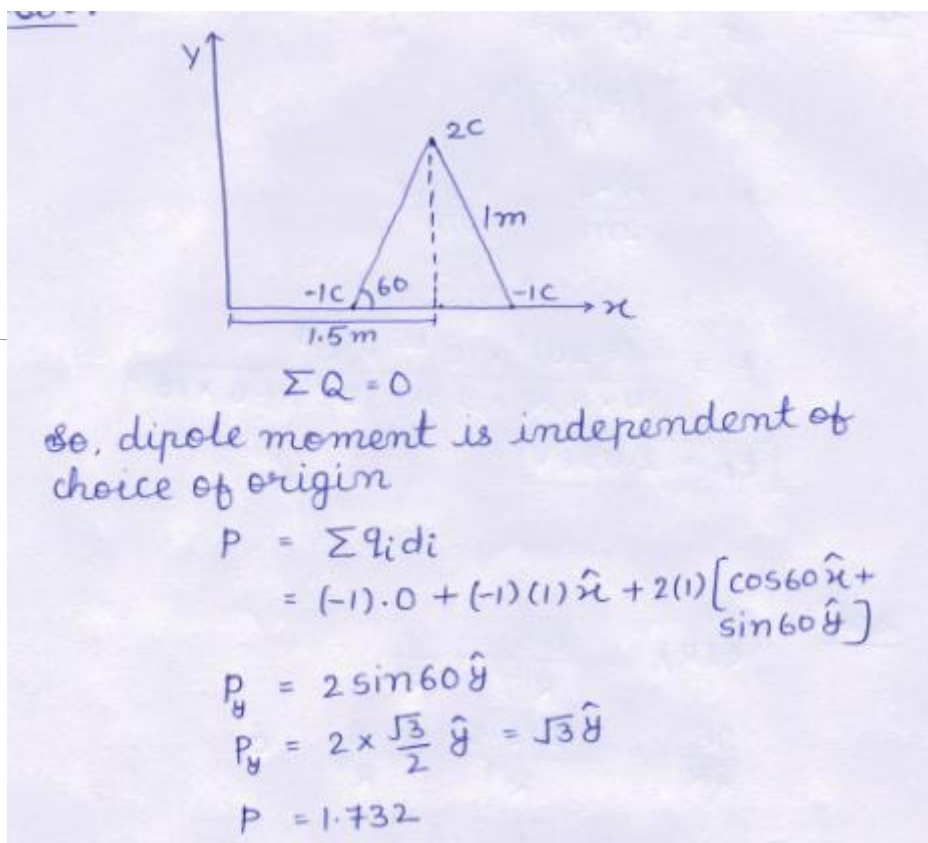 y
2C
1m
-1C 60 -1C x
1.5m
ΣQ = 0
So, dipole moment is independent of
choice of origin
P = Σqidi
= (-1).0 + (-1)(1)x̂ + 2(1)[cos60x̂+
sin60ŷ]
Py = 2sin60ŷ
Py = 2 × √3/2 ŷ = √3ŷ
P = 1.732